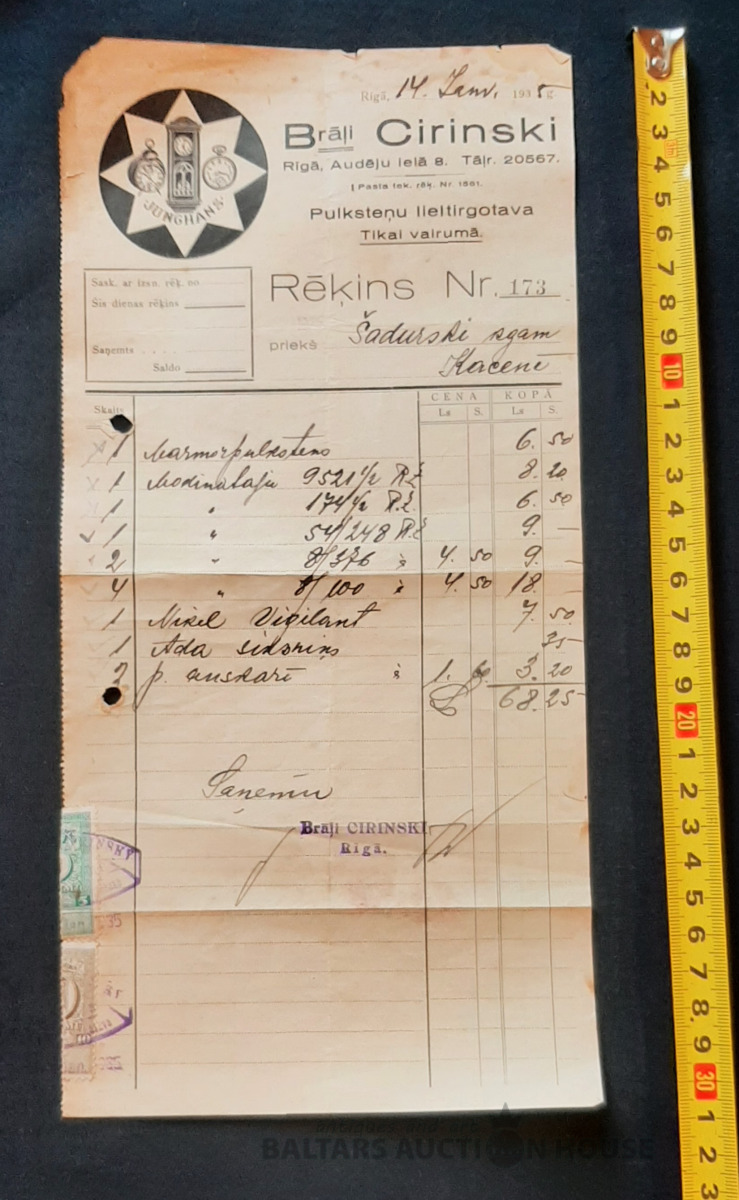 Rīgā, 14. Janv. 1935 g.
JUNGHANS
Brāļi Cirinski
Rīgā, Audēju ielā 8. Tāļr. 20567.
Pasta tek. rēķ. Nr. 1881.
Pulksteņu lieltirgotava
Tikai vairumā.
Sask. ar izsn. rēķ. no
Šis dienas rēķins
Saņemts . . . .
Saldo
Rēķins Nr. 173
priekš Šadurski kgam
Kacenē
Skaits CENA KOPĀ
Ls S. Ls S.
1 Marmorpulkstens 6. 50
1 Modinataju 9521 1/2 8. 20
1 " 174 1/2 6. 50
1 " 54/248 9. —
2 " 8/376 à 4. 50 9. —
4 " 8/100 à 4. 50 18. —
1 Nikel Vigilant 7. 50
1 Ada siksniņs 35
2 p. auskari à 1. 60 3. 20
68. 25
Saņēmu
Brāļi CIRINSKI
Rīgā.
BALTARS AUCTION HOUSE
2 3 4 5 6 7 8 9 10 1 2 3 4 5 6 7 8 9 20 1 2 3 4 5 6 7 8 9 30 1 2 3